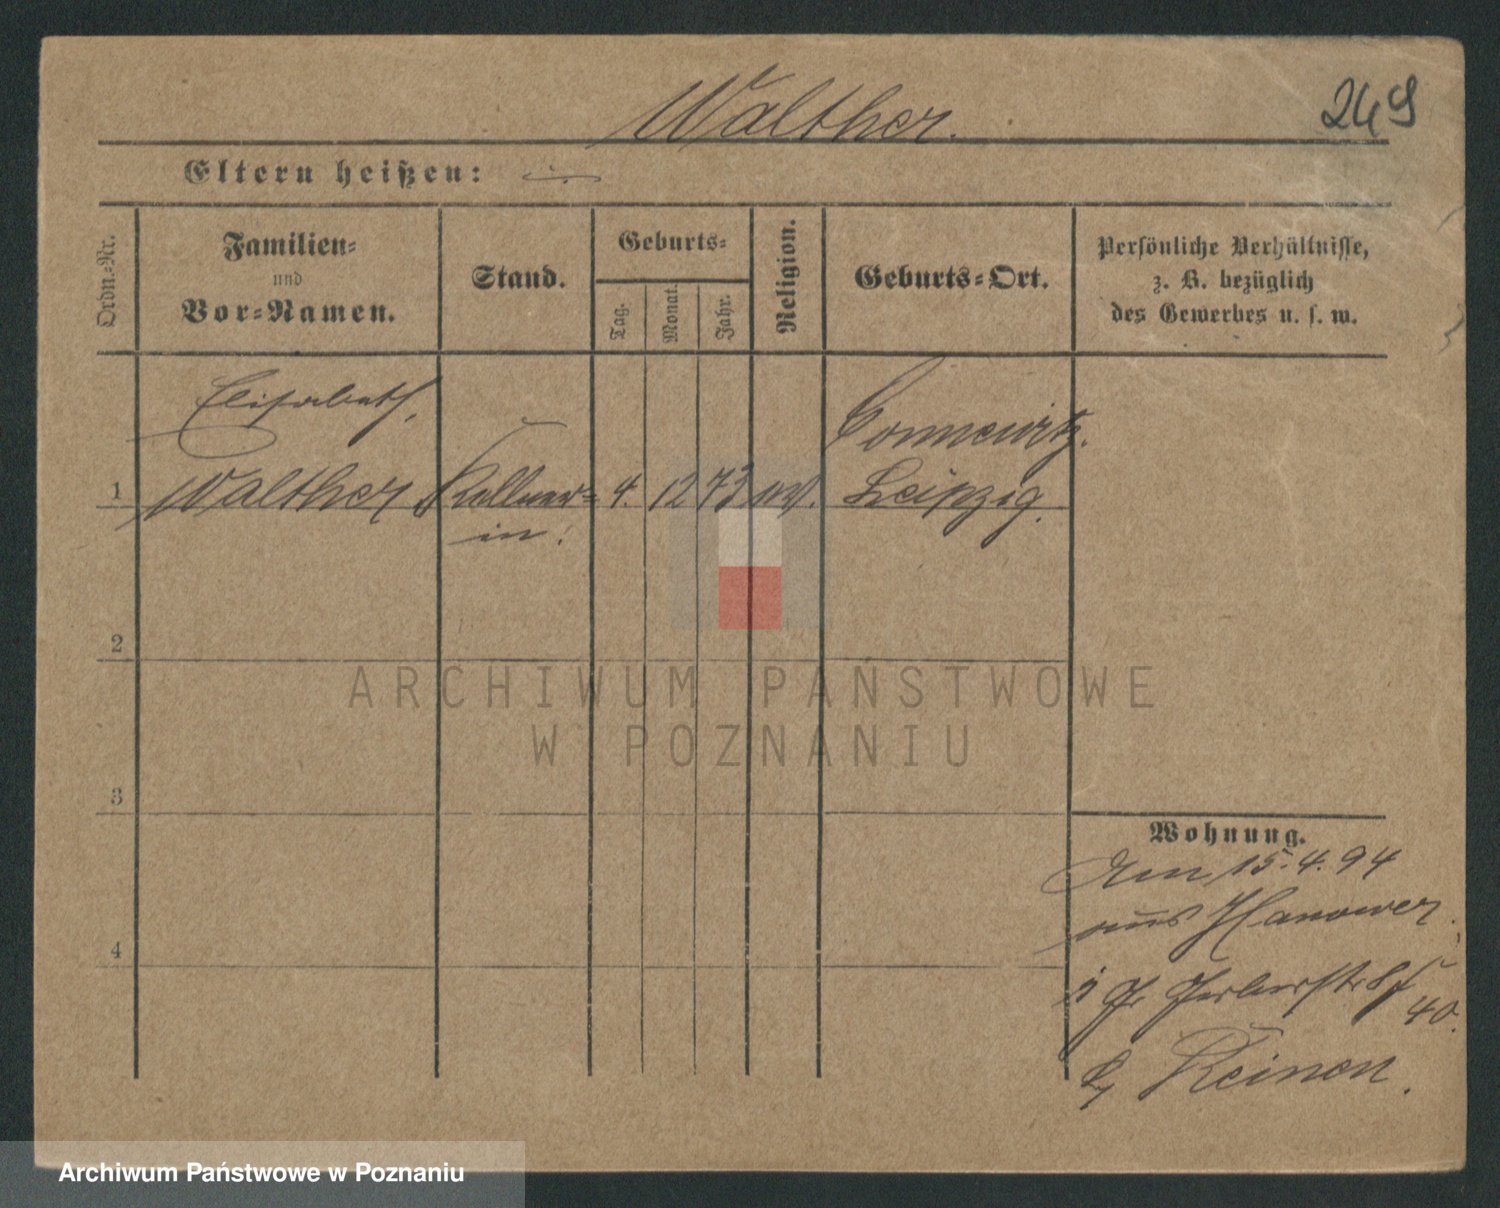 Walther.
249
Eltern heißen:
Ordn.-Nr.
Familien-
und
Vor-Namen.
Stand.
Geburts-
Tag.
Monat.
Jahr.
Religion.
Geburts-Ort.
Persönliche Verhältnisse,
z. B. bezüglich
des Gewerbes u. s. w.
Elisabeth,
1 Walther Kellner= 4. 12 73 ev. Leipzig.
in.
Connewitz.
2
3
4
Wohnung.
Am 15.4.94
aus Hanower.
Gr Gerberstr
40.
b, Reinen.
ARCHIWUM PAŃSTWOWE
W POZNANIU
Archiwum Państwowe w Poznaniu